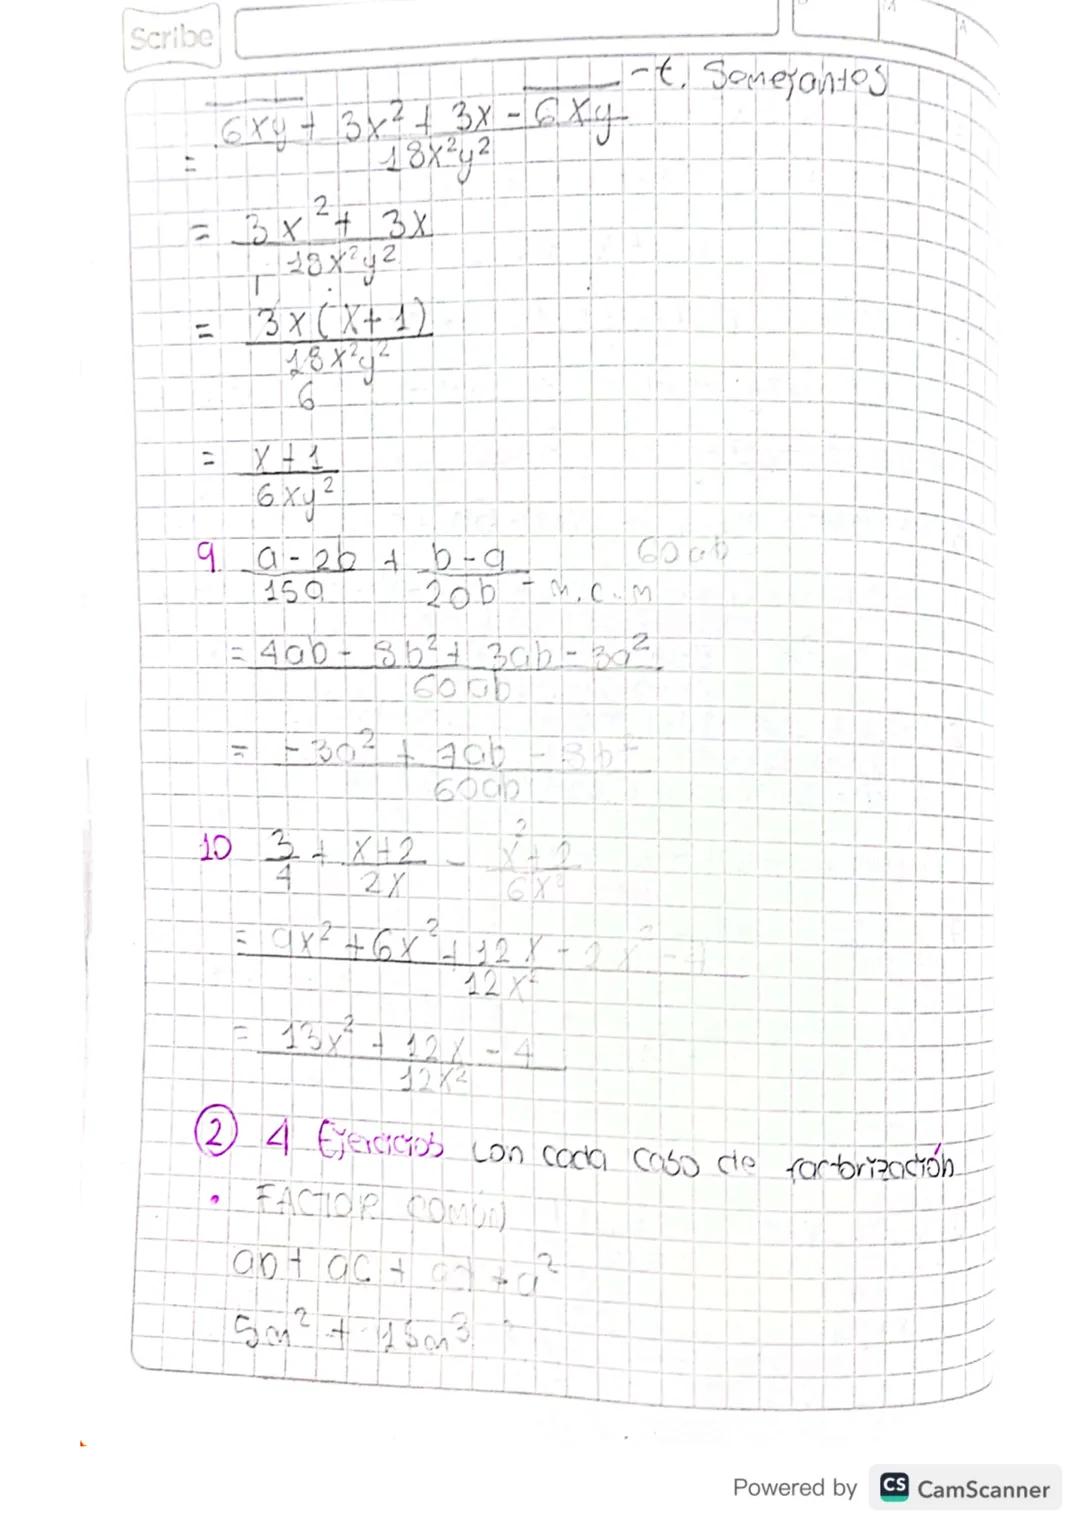 Scribe
- t. Semejantes
= 6xy + 3x² + 3x - 6xy / 18x²y²
= 3x² + 3x / 18x²y²
= 3x(x+1) / 18x²y²
6
= x+1 / 6xy²
9. a - 2b / 15a + b - a / 20b = m.c.m 60ab
= 4ab - 8b² + 3ab - 3a² / 60ab
= -3a² + 7ab - 8b² / 60ab
10 3/4 + x+2 / 2x - x²+2 / 6x²
= 9x² + 6x² + 12x - 2x² - 4 / 12x²
= 13x² + 12x - 4 / 12x²
② 4 Ejercicios con cada caso de factorización
• FACTOR COMÚN
ab + ac + ad + a²
5m² + 15m³
Powered by CS CamScanner